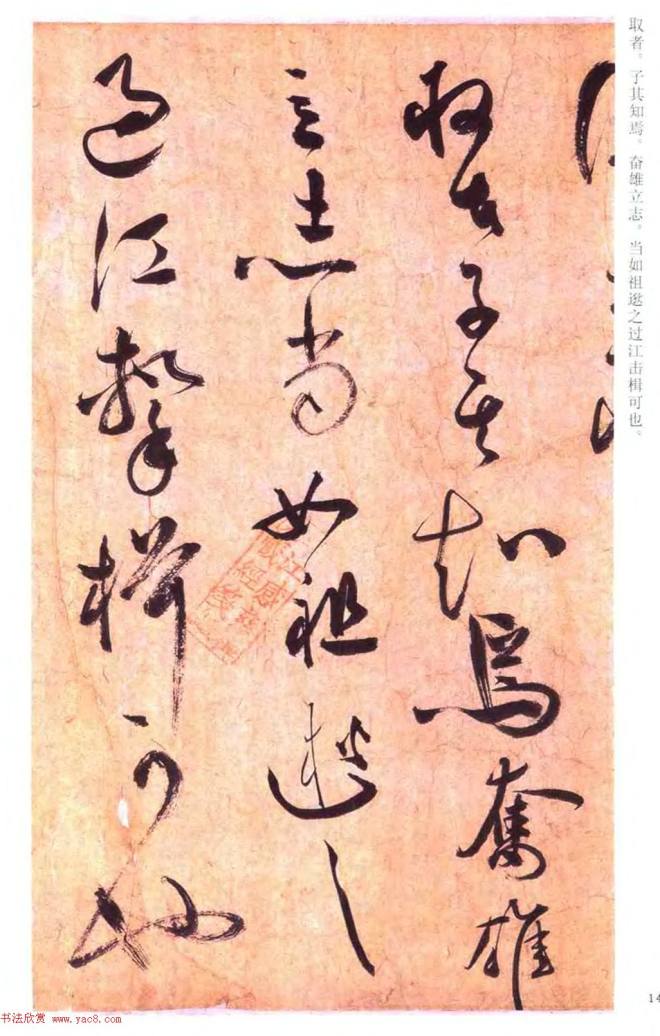 取者。子其知焉。奋雄立志。当如祖逖之过江击楫可也。
取者子其知焉奮雄
立志當如祖逖之
過江擊楫可也
14
书法欣赏 www.yac8.com